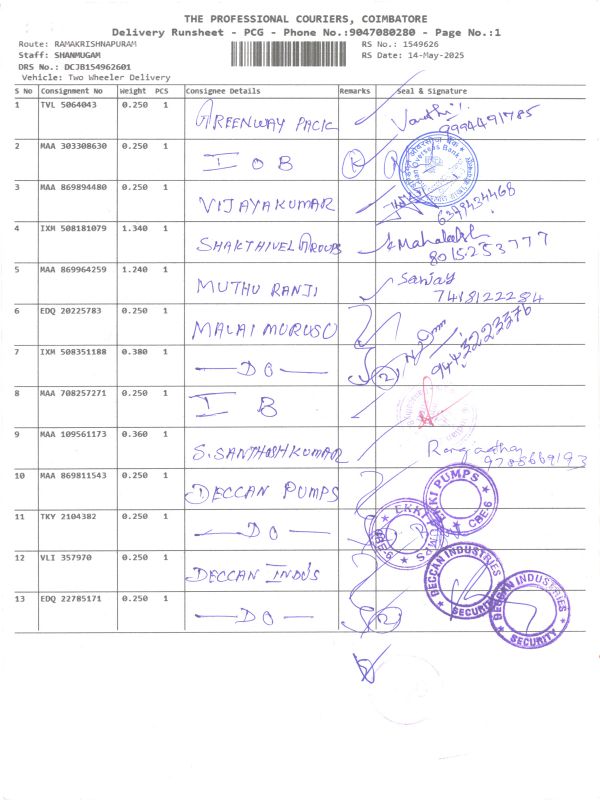 THE PROFESSIONAL COURIERS, COIMBATORE
Delivery Runsheet - PCG - Phone No.:9047080280 - Page No.:1
Route: RAMAKRISHNAPURAM RS No.: 1549626
Staff: SHANMUGAM RS Date: 14-May-2025
DRS No.: DCJB154962601
Vehicle: Two Wheeler Delivery
S No Consignment No Weight PCS Consignee Details Remarks Seal & Signature
1 TVL 5064043 0.250 1 GREENWAY PACK 9994491785
2 MAA 303308630 0.250 1 I O B
3 MAA 869894480 0.250 1 VIJAYAKUMAR 6379434468
4 IXM 508181079 1.340 1 SHAKTHIVEL GROUPS Mahalaksh 8015253777
5 MAA 869964259 1.240 1 MUTHU RANJI Sanjay 7418122284
6 EDQ 20225783 0.250 1 MALAI MURUSU
7 IXM 508351188 0.380 1 — DO — 2 9443223376
8 MAA 708257271 0.250 1 I B
9 MAA 109561173 0.360 1 S.SANTHOSHKUMAR
10 MAA 869811543 0.250 1 DECCAN PUMPS EKKI PUMPS CBE-6
11 TKY 2104382 0.250 1 — DO — EKKI PUMPS CBE-6
12 VLI 357970 0.250 1 DECCAN INDUS DECCAN INDUSTRIES SECURITY
13 EDQ 22785171 0.250 1 — DO — 2 DECCAN INDUSTRIES SECURITY